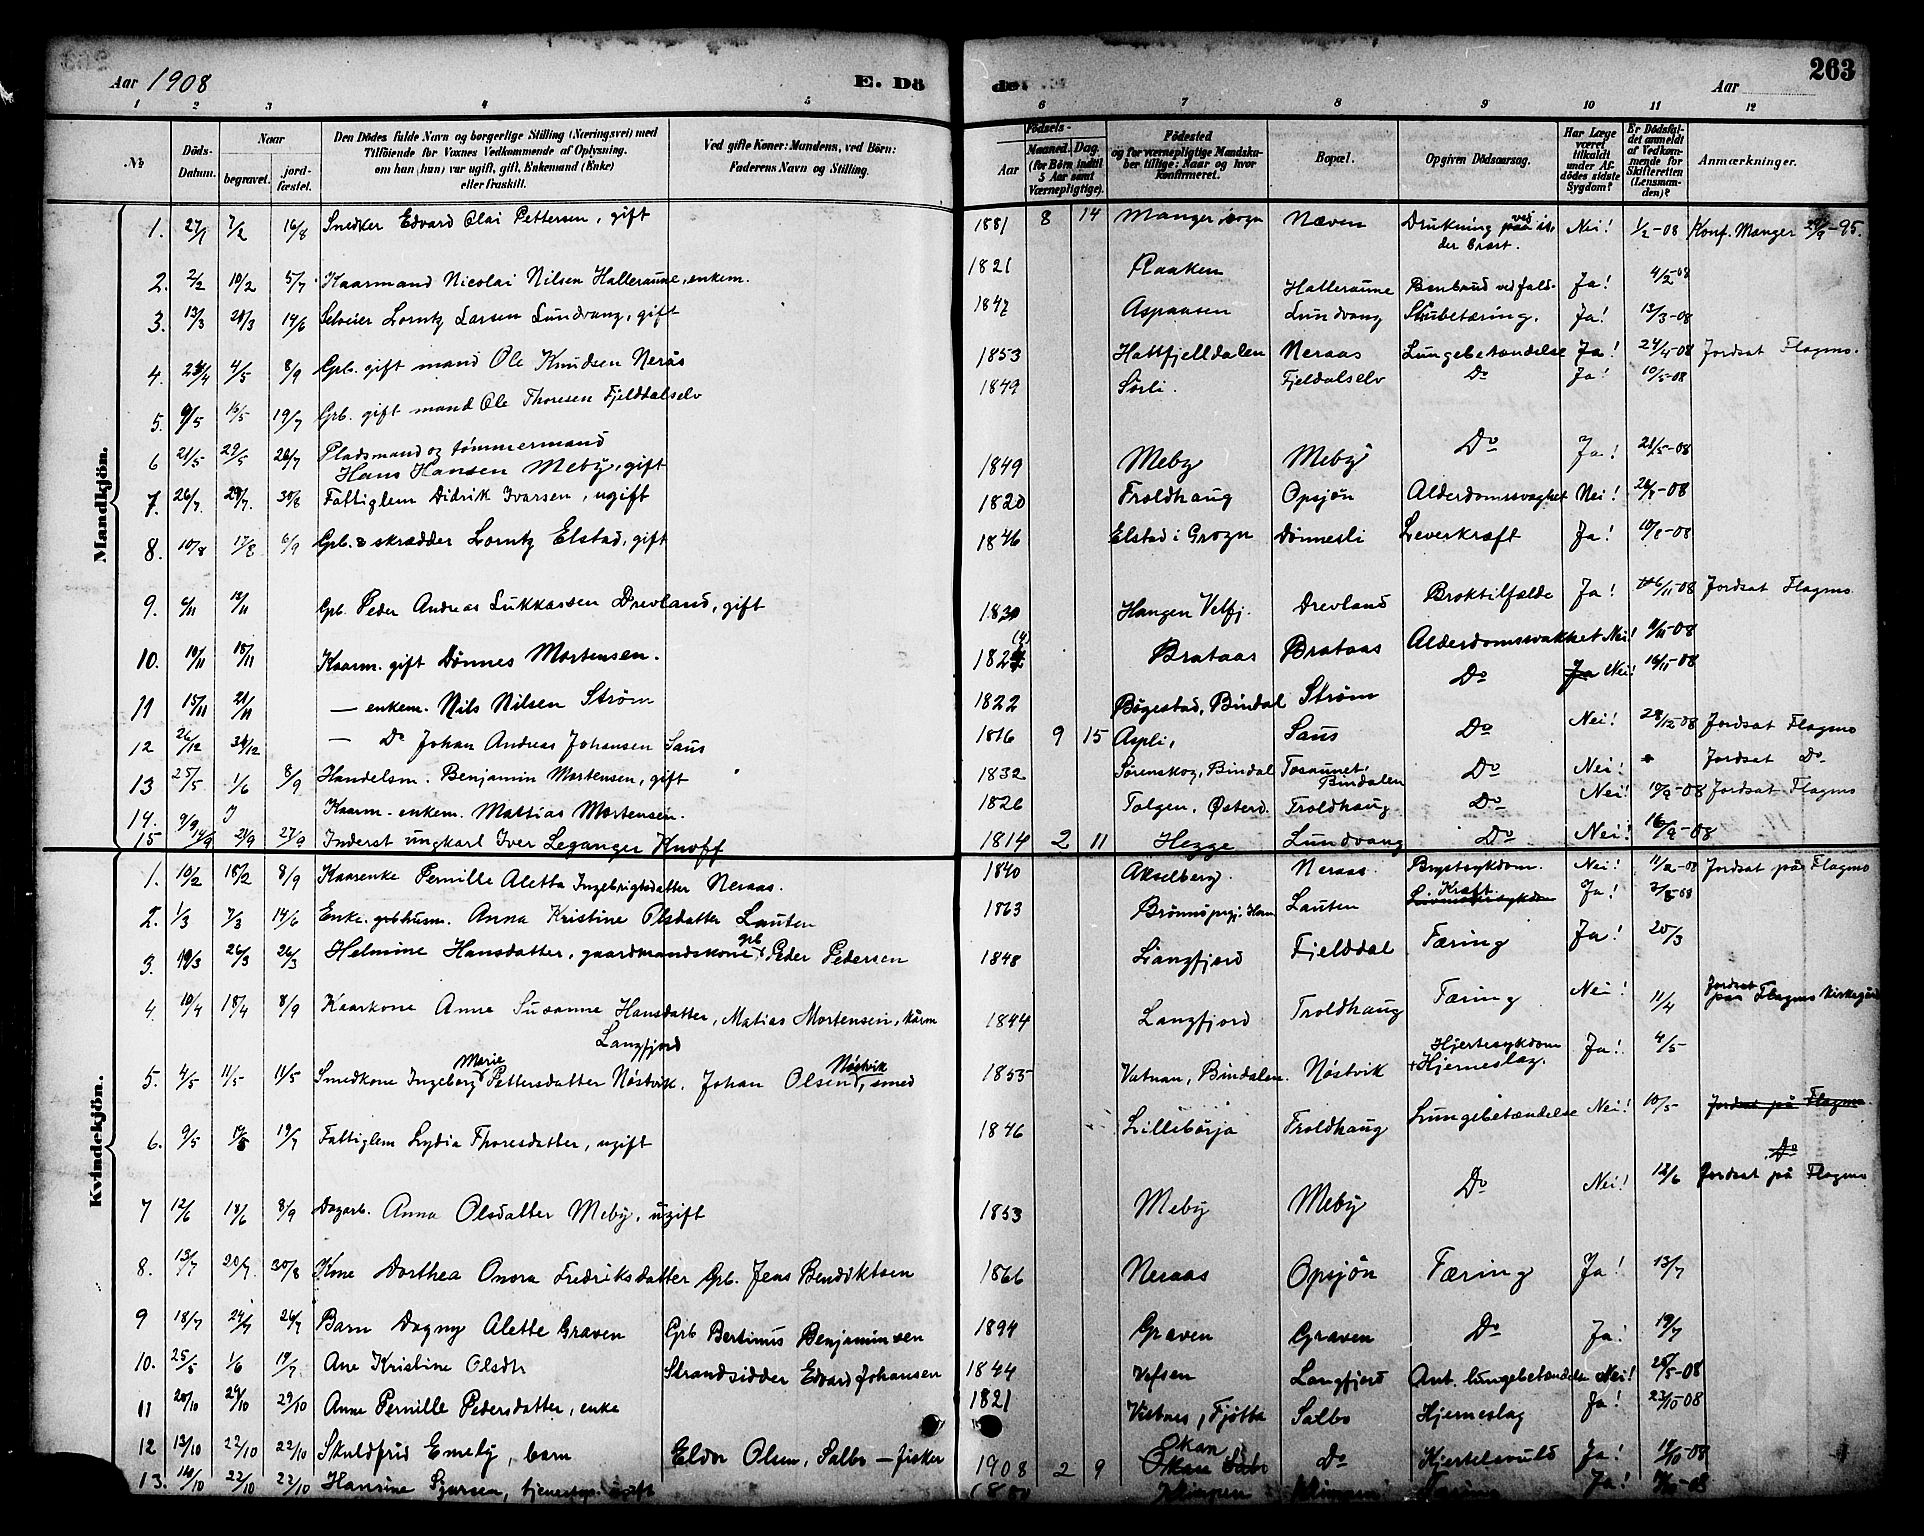 263
Aar 1908
E. Dö
de.
Aar
1 2 3 4 5 6 7 8 9 10 11 12
No
Döds-Datum.
Naar
begravet.
jord-fæstet.
Den Dödes fulde Navn og borgerlige Stilling (Næringsvei) med
Tilföiende for Voxnes Vedkommende af Oplysning,
om han (hun) var ugift, gift, Enkemand (Enke)
eller fraskilt.
Ved gifte Koner: Mandens, ved Börn:
Faderens Navn og Stilling.
Födsels-
Aar
Maaned. Dag.
(for Börn indtil
5 Aar samt
Værnepligtige).
Födested
og for værnepligtige Mandska-
ber tillige: Naar og hvor
konfirmeret.
Bopæl.
Opgiven Dödsaarsag.
Har Læge
været
tilkaldt
under Af-
dödes sidste
Sygdom?
Er Dödsfal-
det anmeldt
af Vedkom-
mende for
Skifteretten
(Lensman-
den)?
Anmærkninger.
Mandkjön.
1. 27/1 7/2 16/8 Snedker Edvard Olai Pettersen, gift 1881 8 14 Manger sogn Næven Drukning ved is, der brast. Nei! 1/2-08 Konf. Manger -95.
2. 2/2 10/2 5/7 Kaarmand Nicolai Nilsen Halleraune, enkem. 1821 Raaken Halleraune Benbrud ved fald. Ja! 4/2-08
3. 13/3 21/3 14/6 Selveier Lorntz Larsen Lundvang, gift 1847 Aspaasen Lundvang Ja! 13/3-08
4. 23/4 4/5 8/9 Gpb. gift mand Ole Knudsen Nerås 1853 Hattfjelldalen Neraas Lungebetændelse Ja! 24/4-08 Jordsat Flagmo.
5. 9/5 16/5 19/7 Gpb. gift mand Ole Thoresen Fjelddalselv 1849 Sørli. Fjeldalselv Do Ja! 19/5-08
6 21/5 29/5 26/7 Pladsmand og tømmermand
Hans Hansen Meby, gift 1849 Meby Meby Do Ja! 21/5-08
7. 26/7 29/7. 30/8 Fattiglem Didrik Ivarsen, ugift 1820 Troldhaug Opsjøn Alderdomssvaghet Nei! 26/7-08
8. 10/8 17/8 6/9 Gpb. & skrædder Lorntz Elstad, gift 1846 Elstad i Grogn Dønnesli Leverkræft Ja! 10/8-08
9. 6/11 13/11 Gpb. Peder Andreas Lukkassen Drevland, gift 1830 Haugen Velfj. Drevland Broktilfælde Ja! 6/11-08 Jordsat Flagmo
10. 10/11 18/11 Kaarm. gift Dønnes Mortensen. 1824 Brataas Brataas Alderdomssvakhet Nei! 9/11-08
11 15/11 21/11 — enkem. Nils Nilsen Strøm 1822 Bøgestad, Bindal Strøm Do Ja Nei! 16/11-08
12 26/12 31/12 — Do Johan Andreas Johansen Saus 1816 9 15 Aspli, Saus Do Nei! 28/12-08 Jordsat Flagmo
13 25/5 1/6 8/9 Handelsm. Benjamin Mortensen, gift 1832 Sørenskog, Bindal Tosaunet, Bindalen Do Nei! Jordsat Do
14. 9/9 Kaarm. enkem. Mattias Mortensen. 1826 Tolgen, Østerd. Troldhaug Do Nei! 10/9-08 Jordsat Flagmo
15 14/9 21/9 27/9 Inderst ungkarl Iver Leganger Knoff 1814 2 11 Hegge Lundvang Do Nei! 16/9-08
Kvindekjön.
1. 10/2 18/2 8/9 Kaarenke Pernille Aletta Ingebrigtsdatter Neraas. 1840 Akselberg. Neraas. Brystsykdom. Nei! 11/2-08 Jordsat på Flagmo
2. 1/3 7/3 14/6 Enke, gpb husm. Anna Kristine Olsdatter Lauten 1863 Lauten Kræft Ja! 08
3. 19/3 26/3 26/3 Helmine Hansdatter, gaardmandskone, gpb. Peder Pedersen 1848 Langfjord Fjelddal Tæring Ja! 20/3
4. 10/4 18/4 8/9 Kaarkone Anne Susanne Hansdatter, Matias Mortensen, kårm
Langfjord 1844 Langfjord Troldhaug Tæring Nei! 11/4 Jordsat på Flagmo kirkegård
5. 4/5 11/5 11/5 Smedkone Ingeborg Marie Pettersdatter Nøstvik. Johan Olsen Nøstvik, smed 1855 Vatnan, Bindalen. Nøstvik Hjertesykdom + Hjerneslag. Ja! 4/5
6. 9/5 17/5 19/7 Fattiglem Lydia Thoresdatter, ugift 1846 Lillebørja Troldhaug Lungebetændelse Nei! 10/5 Jordsat på Flagmo
7 12/6 18/6 8/9 Dagarb. Anna Olsdatter Meby, ugift 1853 Meby Meby Do Nei! 12/6 Do Jordsat på Flagmo
8. 13/7 20/7. 30/8 Kone Dorthea Onora Fredriksdatter Gpb. Jens Bendiktsen 1866 Neraas Opsjøn Tæring Ja! 13/7
9 18/7 24/7 26/7 Barn Dagny Alette Graven Gpb Bertinus Benjaminsen 1894 Graven Graven Do Ja! 19/7
10. 25/5 1/6 19/7 Ane Kristine Olsdtr Strandsidder Edvard Johansen 1844 Vefsen Langfjord Ant. lungebetændelse Nei! 26/5-08
11 20/10 29/10 29/10 Anne Pernille Pedersdatter, enke 1821 Vistnes, Tjøtta Salbo Hjerneslag Ja! 23/10-08
12 13/10 22/10 22/10 Skuldfrid Emely, barn Eldor Olsen, Salbo — fisker 1908 2 9 Okan Do Kjertelsvuld Ja! 14/10-08
13. 14/10 22/10 22/10 Hansine Sjursen, Ja! 08